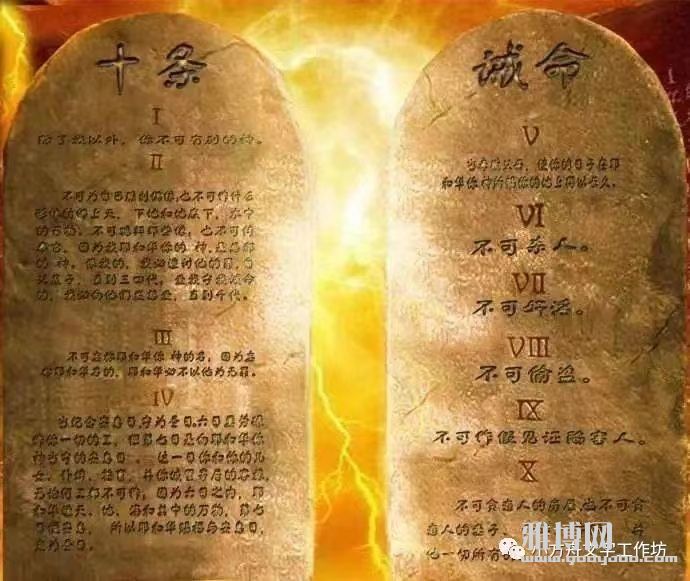 十条
I
除了我以外,你不可有别的神。
II
不可为自己雕刻偶像,也不可作什么
形像仿佛上天、下地和地底下、水中
的百物。不可跪拜那些像,也不可侍
奉它,因为我耶和华你的 神,是忌邪
的 神。恨我的,我必追讨他的罪,自
父及子,直到三四代,爱我守我诫命
的,我必向他们发慈爱,直到千代。
III
不可妄称耶和华你 神的名,因为妄
称耶和华名的,耶和华必不以他为无罪。
IV
当纪念安息日,守为圣日。六日要劳碌
作你一切的工,但第七日是向耶和华你
神当守的安息日。这一日你和你的儿
女、仆婢、牲畜、并你城里寄居的客旅,
无论何工都不可作;因为六日之内,耶
和华造天、地、海和其中的万物,第七
日便安息, 所以耶和华赐福与安息日,
定为圣日。
诫命
V
当孝敬父母,使你的日子在耶
和华你神所赐你的地上得以长久。
VI
不可杀人。
VII
不可奸淫。
VIII
不可偷盗。
IX
不可作假见证陷害人。
X
不可贪恋人的房屋,也不可贪
恋人的妻子、 并
他一切所有
雅博网
小方舟文字工作坊